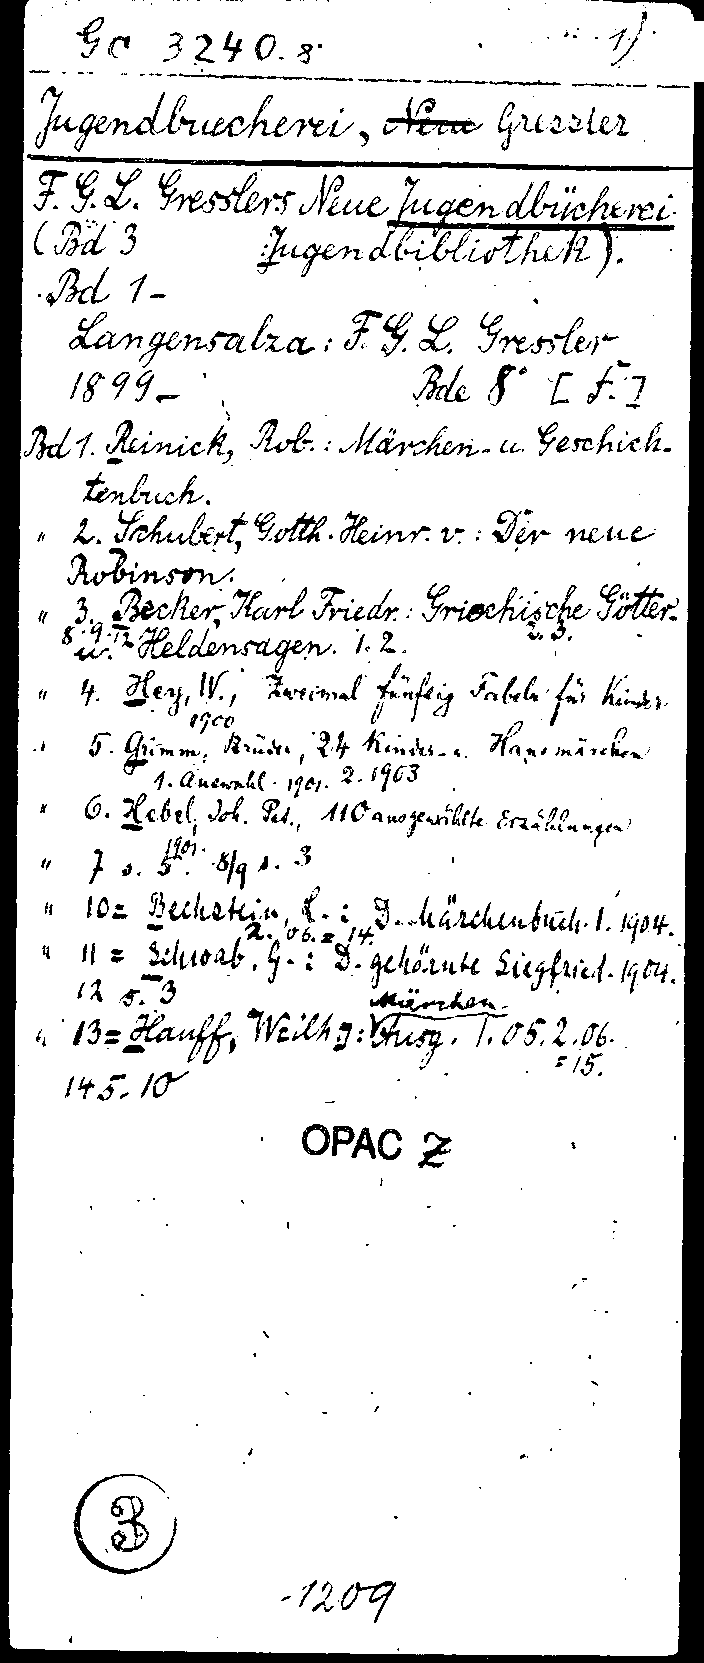 Gc 3240.8° 1).
Jugendbuecherei, Neue Gressler
F. G. L. Gresslers Neue Jugendbücherei
(Bd 3 : Jugendbibliothek).
Bd 1-
Langensalza: F. G. L. Gressler
1899- Bde 8° [F.]
Bd 1. Reinick, Rob.: Märchen- u. Geschich-
tenbuch.
" 2. Schubert, Gotth. Heinr. v.: Der neue
Robinson.
" 3. Becker, Karl Friedr.: Griechische Götter-
8. 9. 12 u. Heldensagen. 1. 2. 2. 3.
" 4. Hey, W., Zweimal fünfzig Fabeln für Kinder
1900
" 5. Grimm, Brüder, 24 Kinder- u. Hausmärchen
1. Auswahl. 1901. 2. 1903
" 6. Hebel, Joh. Pet., 110 ausgewählte Erzählungen
1901.
" 7 s. 5. 8/9 s. 3
" 10= Bechstein, L.: D. Märchenbuch. 1. 1904.
2. 06. = 14.
" 11 = Schwab, G.: D. gehörnte Siegfried. 1904.
12 s. 3 Märchen.
" 13= Hauff, Weilh.: Ausg. 1. 05. 2. 06.
= 15.
14 s. 10
OPAC Z
3
-1209